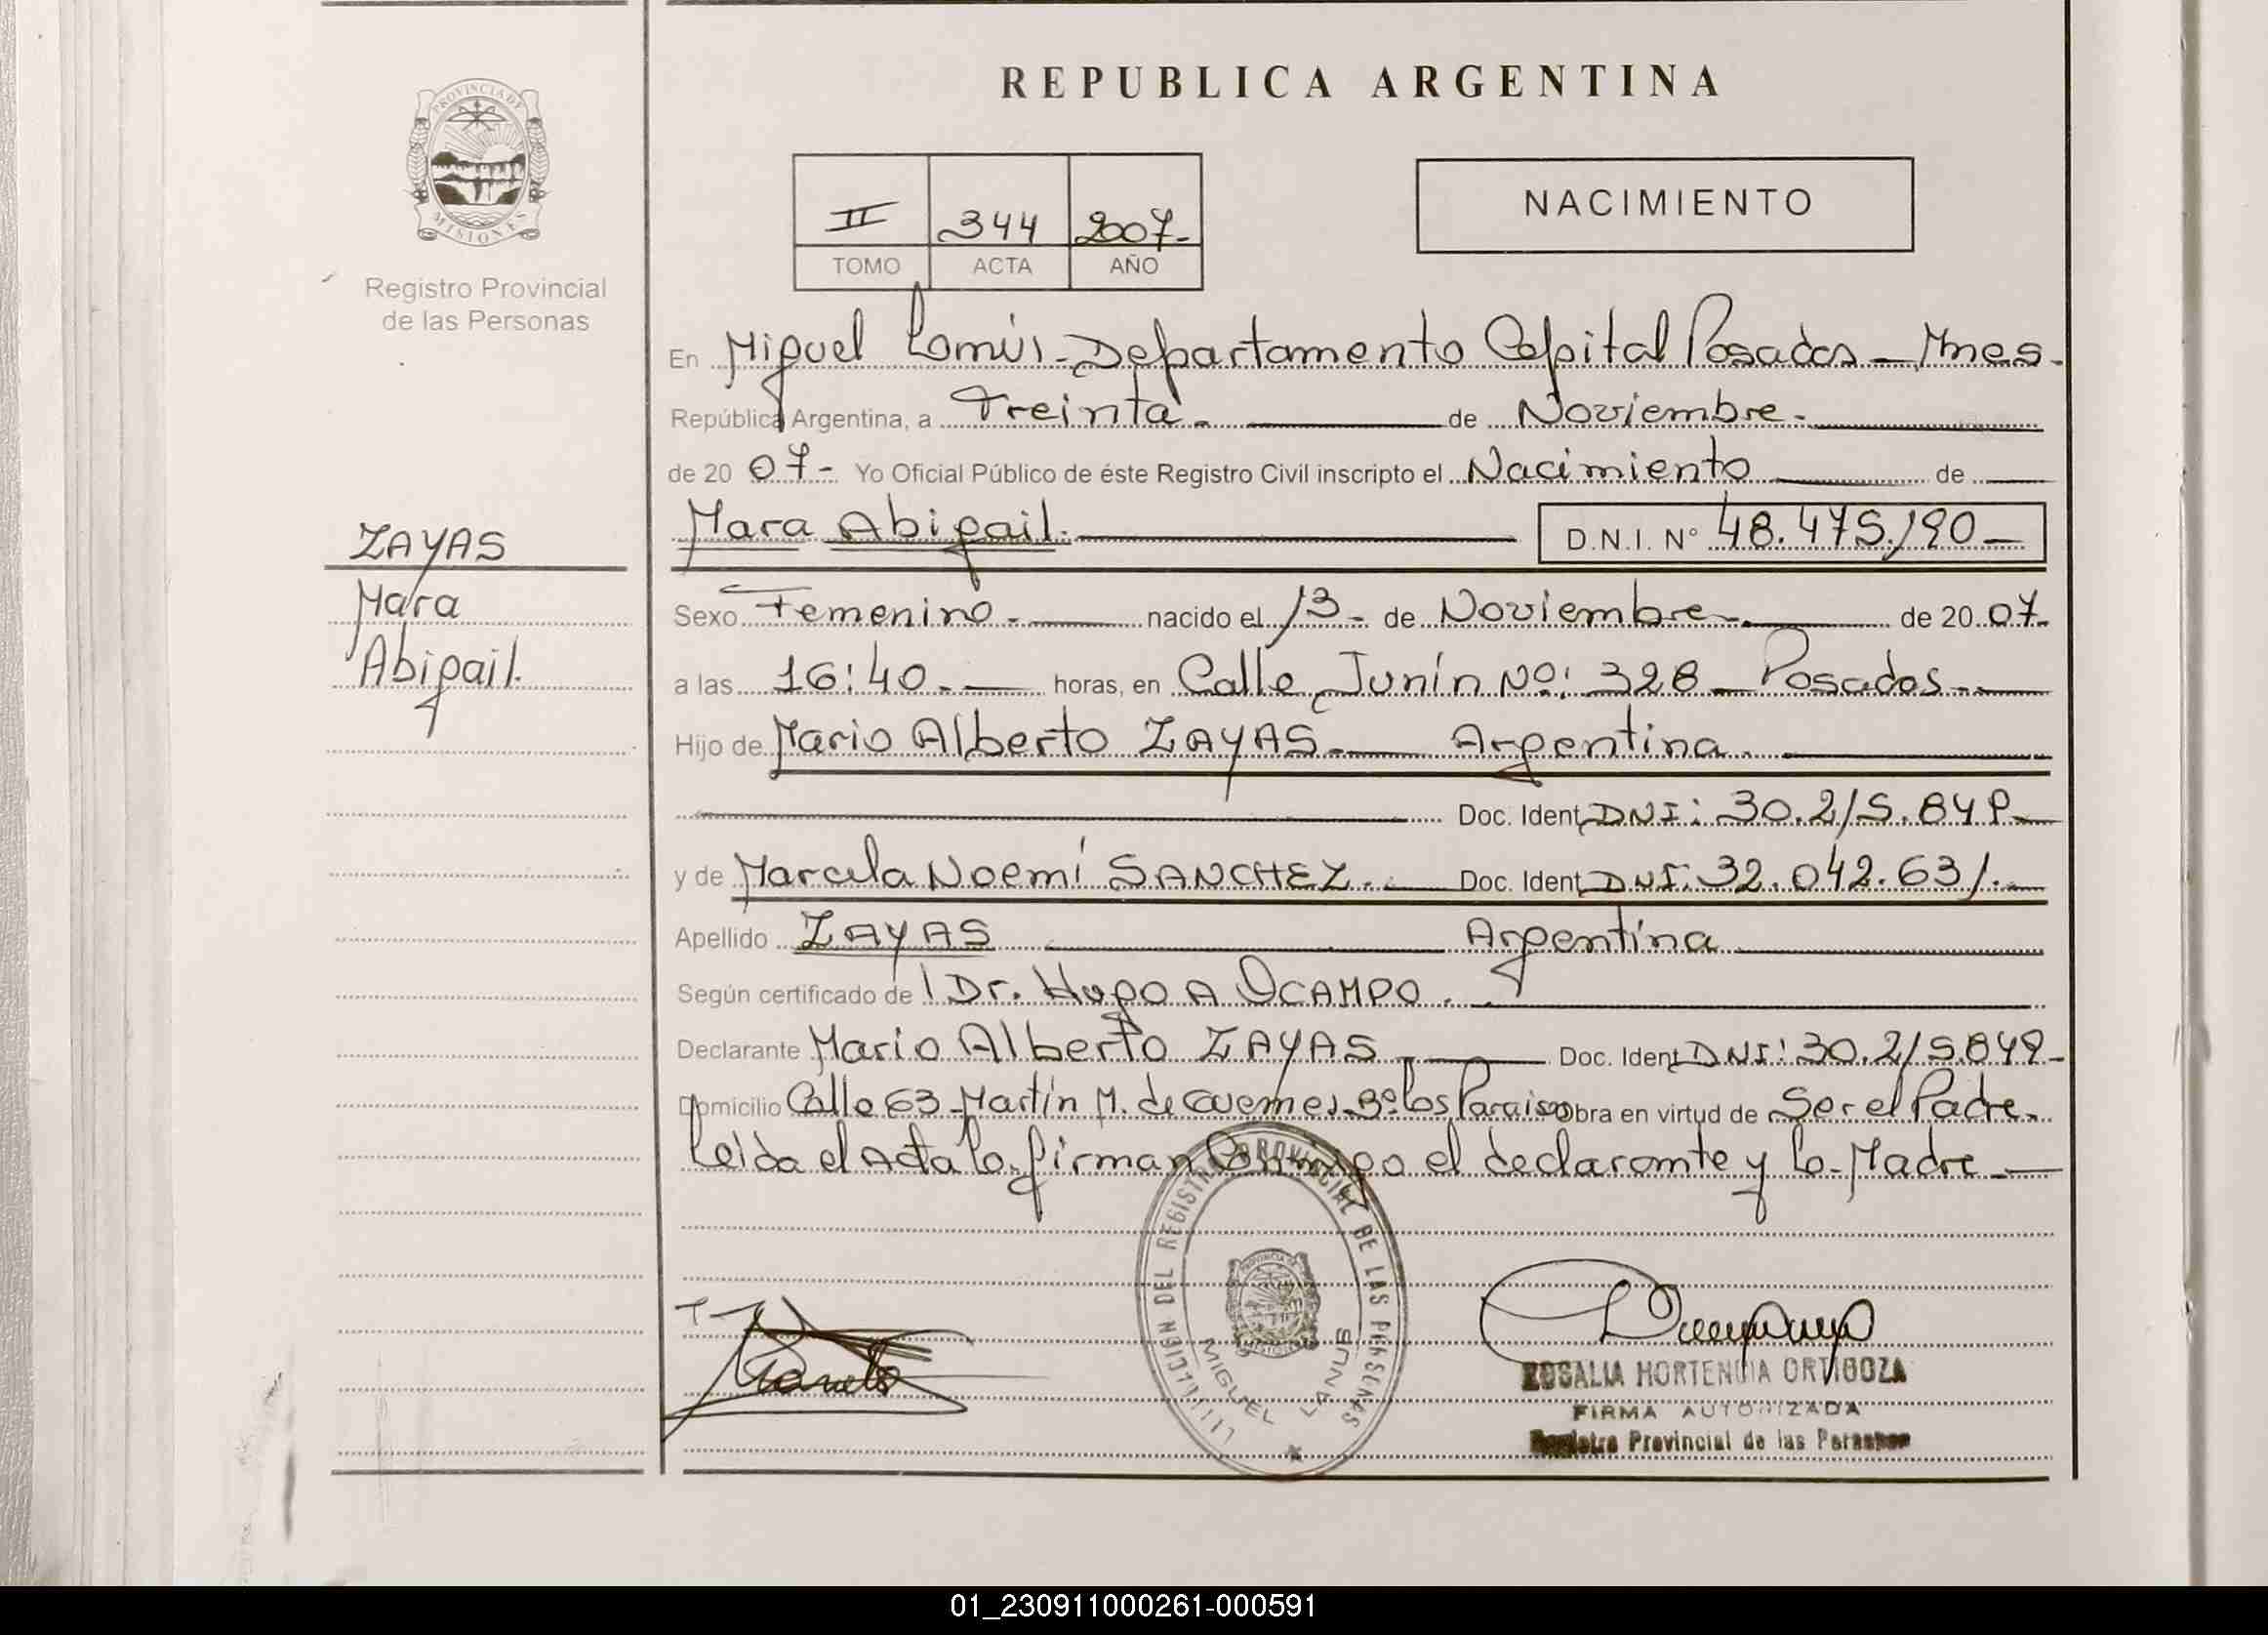 REPUBLICA ARGENTINA
PROVINCIA DE
MISIONES
Registro Provincial
de las Personas
II 344 2007-
TOMO ACTA AÑO
NACIMIENTO
En Miguel Lanús - Departamento Capital Posadas - Mnes-
República Argentina, a Treinta. de Noviembre-
de 20 07- Yo Oficial Público de éste Registro Civil inscripto el Nacimiento de
Mara Abigail. D.N.I. N° 48.475.190-
ZAYAS
Mara
Abigail.
Sexo Femenino- nacido el 13- de Noviembre- de 20 07-
a las 16:40.- horas, en Calle Junín Nº: 328 - Posadas.-
Hijo de Mario Alberto ZAYAS- Argentina.
Doc. Ident DNI: 30.215.849-
y de Marcela Noemí SANCHEZ.- Doc. Ident DNI: 32.042.631.-
Apellido ZAYAS Argentina
Según certificado de Dr. Hugo A OCAMPO.
Declarante Mario Alberto ZAYAS Doc. Ident DNI: 30.215.849-
Domicilio Calle 63 - Martín M. de Guemes - Bº los Paraiso obra en virtud de Ser el Padre.
Leida el Acta la firman Conmigo el declarante y la Madre
DEL REGISTRO PROVINCIAL DE LAS PERSONAS
MIGUEL LANUS
ROSALIA HORTENCIA ORTIGOZA
FIRMA AUTORIZADA
Registro Provincial de las Personas
01_230911000261-000591